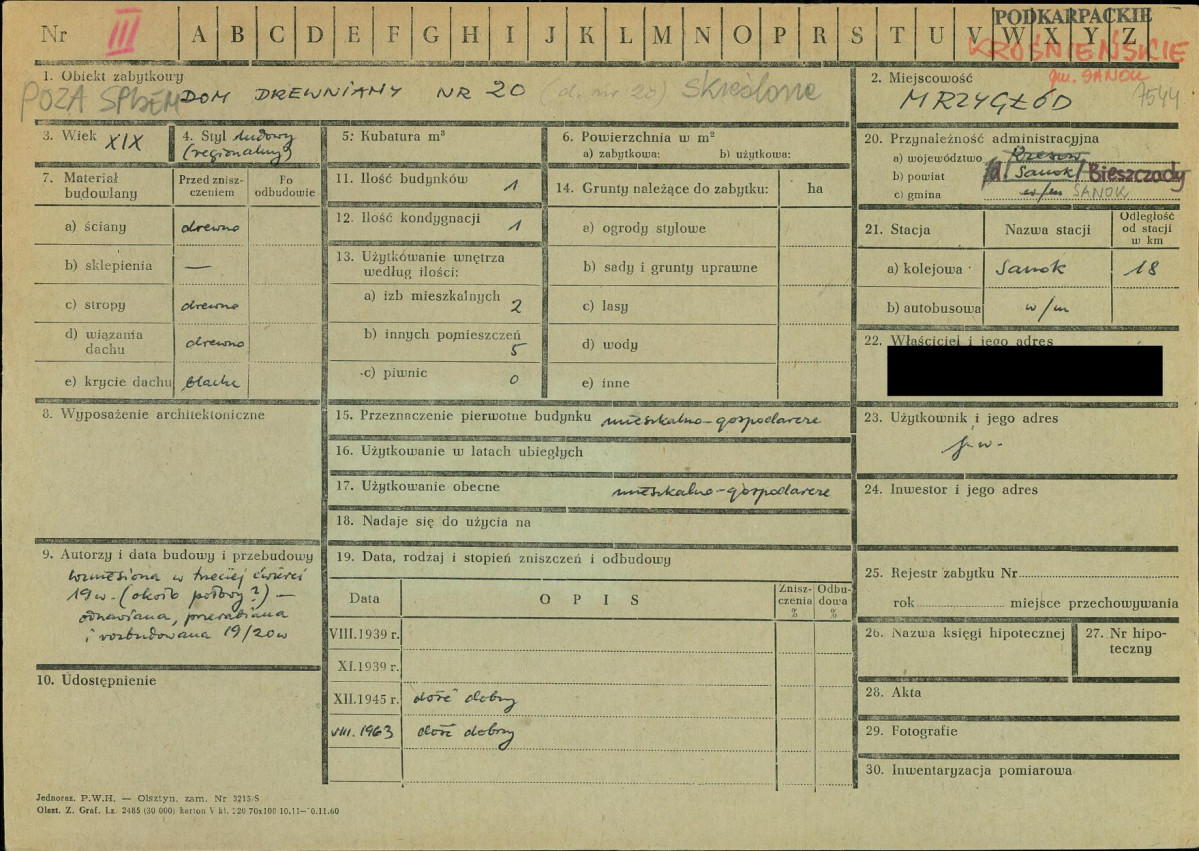 Nr III A B C D E F G H I J K L M N O P R S T U V W X Y Z
PODKARPACKIE
KROŚNIEŃSKIE
gm. SANOK
1. Obiekt zabytkowy
POZA SPISEM DOM DREWNIANY NR 20 (d. nr 20) Skreślone
2. Miejscowość
MRZYGŁÓD 7544
3. Wiek XIX
4. Styl ludowy
(regionalny)
5. Kubatura m³
6. Powierzchnia w m²
a) zabytkowa: b) użytkowa:
7. Materiał budowlany
Przed zniszczeniem
Po odbudowie
a) ściany drewno
b) sklepienia —
c) stropy drewno
d) wiązania dachu drewno
e) krycie dachu blacha
11. Ilość budynków 1
12. Ilość kondygnacji 1
13. Użytkowanie wnętrza
według ilości:
a) izb mieszkalnych 2
b) innych pomieszczeń 5
c) piwnic 0
14. Grunty należące do zabytku: ha
a) ogrody stylowe
b) sady i grunty uprawne
c) lasy
d) wody
e) inne
20. Przynależność administracyjna
a) województwo Rzeszów
b) powiat Sanok Bieszczady
c) gmina w/m SANOK
21. Stacja
Nazwa stacji
Odległość
od stacji
w km
a) kolejowa Sanok 18
b) autobusowa w/m
22. Właściciel i jego adres
8. Wyposażenie architektoniczne
15. Przeznaczenie pierwotne budynku mieszkalno-gospodarcze
16. Użytkowanie w latach ubiegłych
17. Użytkowanie obecne mieszkalno-gospodarcze
18. Nadaje się do użycia na
23. Użytkownik i jego adres
j.w.
24. Inwestor i jego adres
9. Autorzy i data budowy i przebudowy
wzniesiona w trzeciej ćwierci
19 w. (około połowy?) —
odnawiana, przerabiana
i rozbudowana 19/20 w
10. Udostępnienie
19. Data, rodzaj i stopień zniszczeń i odbudowy
Data
OPIS
Zniszczenia %
Odbudowa %
VIII.1939 r.
XI.1939 r.
XII.1945 r. dość dobry
VIII.1963 dość dobry
25. Rejestr zabytku Nr
rok miejsce przechowywania
26. Nazwa księgi hipotecznej
27. Nr hipoteczny
28. Akta
29. Fotografie
30. Inwentaryzacja pomiarowa
Jednoraz. P.W.H. — Olsztyn, zam. Nr 3215/S
Olszt. Z. Graf. Lz. 2485 (30 000) karton V kl. 220 70x100 10.11—10.11.60